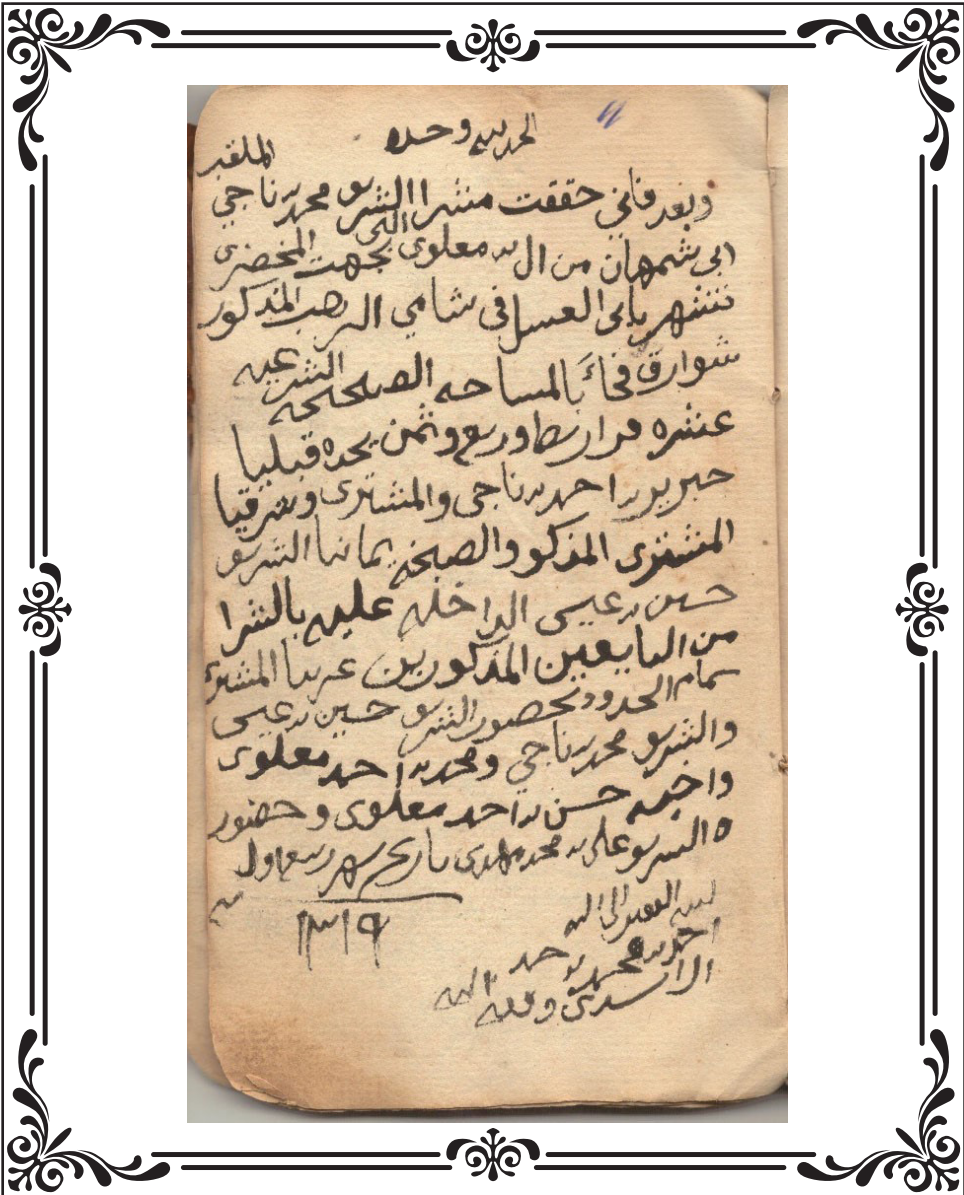 الحمد لله وحده
وبعد فاني حققت مشرا الشريف محمد بن ناجي الملقب
ابي شمهان من ال معلوى التي بجهت المخضرى
تشهر بابي العسل في شامي المذكور
شوارق فجاء بالمساحه الصحيحه الشرعيه
عشره وربع وثمن يحده قبليا
احمد بن ناجي والمشترى وشرقيا
المشترى المذكور والصبخه يمانيا الشريف
حسين بن عيسى الداخله عليه بالشرا
من البايعين المذكورين غربيا المشترى
تمام الحدود بحضور الشريف حسين بن عيسى
والشريف محمد بن ناجي ومحمد بن احمد معلوى
واخيه حسن بن احمد معلوى وحضور
الشريف علي بن محمد مهدى بتاريخ شهر ربيع اول
سنه ١٣١٩
كتبه الفقير الى الله
احمد بن محمد بن حمد
وفقه الله